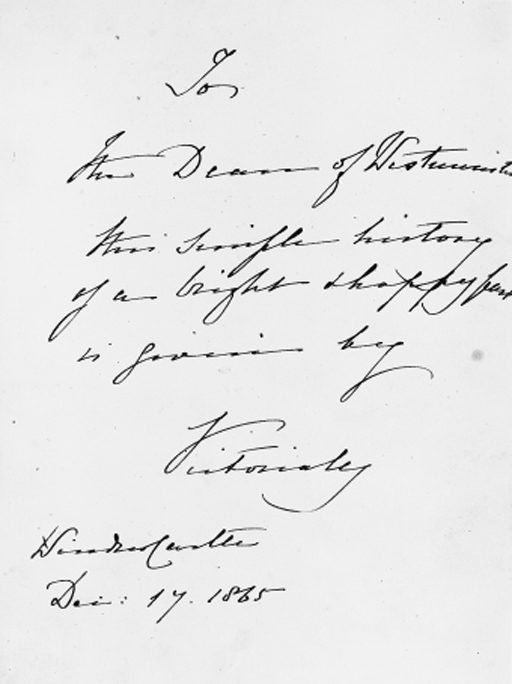 To
the Dean of Westminster
this simple history
of a bright & happy past
is given by
Victoria Reg
Windsor Castle
Dec: 17. 1865